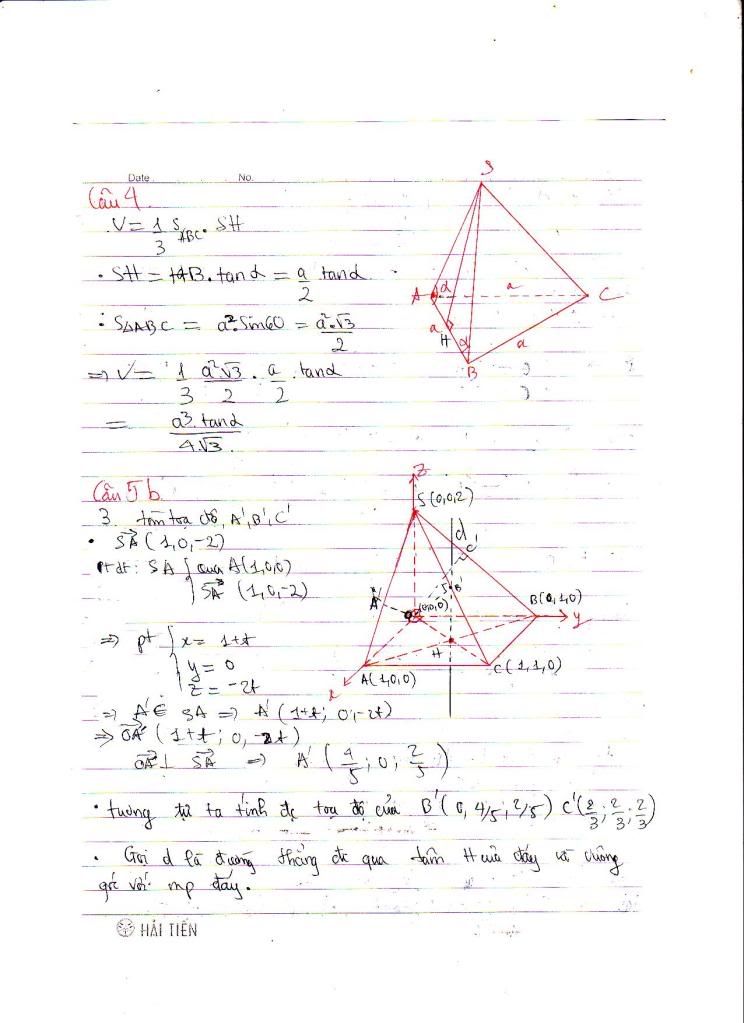 Date No.
Câu 4
V = 1/3 S_ABC . SH
• SH = HB . tanα = a/2 tanα
• S△ABC = a². sin60 = a².√3/2
⇒ V = 1/3 a²√3/2 . a/2 . tanα
= a³. tanα/4√3.
S
A α a C
a
H α a
B
Câu 5b
3. tìm toạ độ, A', B', C'
• SA→ (1,0,-2)
pt dt : SA { qua A(1,0,0)
SA→ (1,0,-2)
⇒ pt { x = 1+t
y = 0
z = -2t
⇒ A' ∈ SA ⇒ A' (1+t; 0,-2t)
⇒ OA'→ (1+t; 0, -2t)
OA'→ ⊥ SA→ ⇒ A' (4/5; 0; 2/5)
z
S(0,0,2)
d
C'
B'
A' (0,0,0) B(0,1,0)
y
H
A(1,0,0) C(1,1,0)
x
• tương tự ta tính đc toạ độ của B'(0, 4/5, 2/5) C'(2/3; 2/3; 2/3)
• Gọi d là đường thẳng đi qua tâm H của đáy và vuông
góc với mp đáy.
HẢI TIẾN